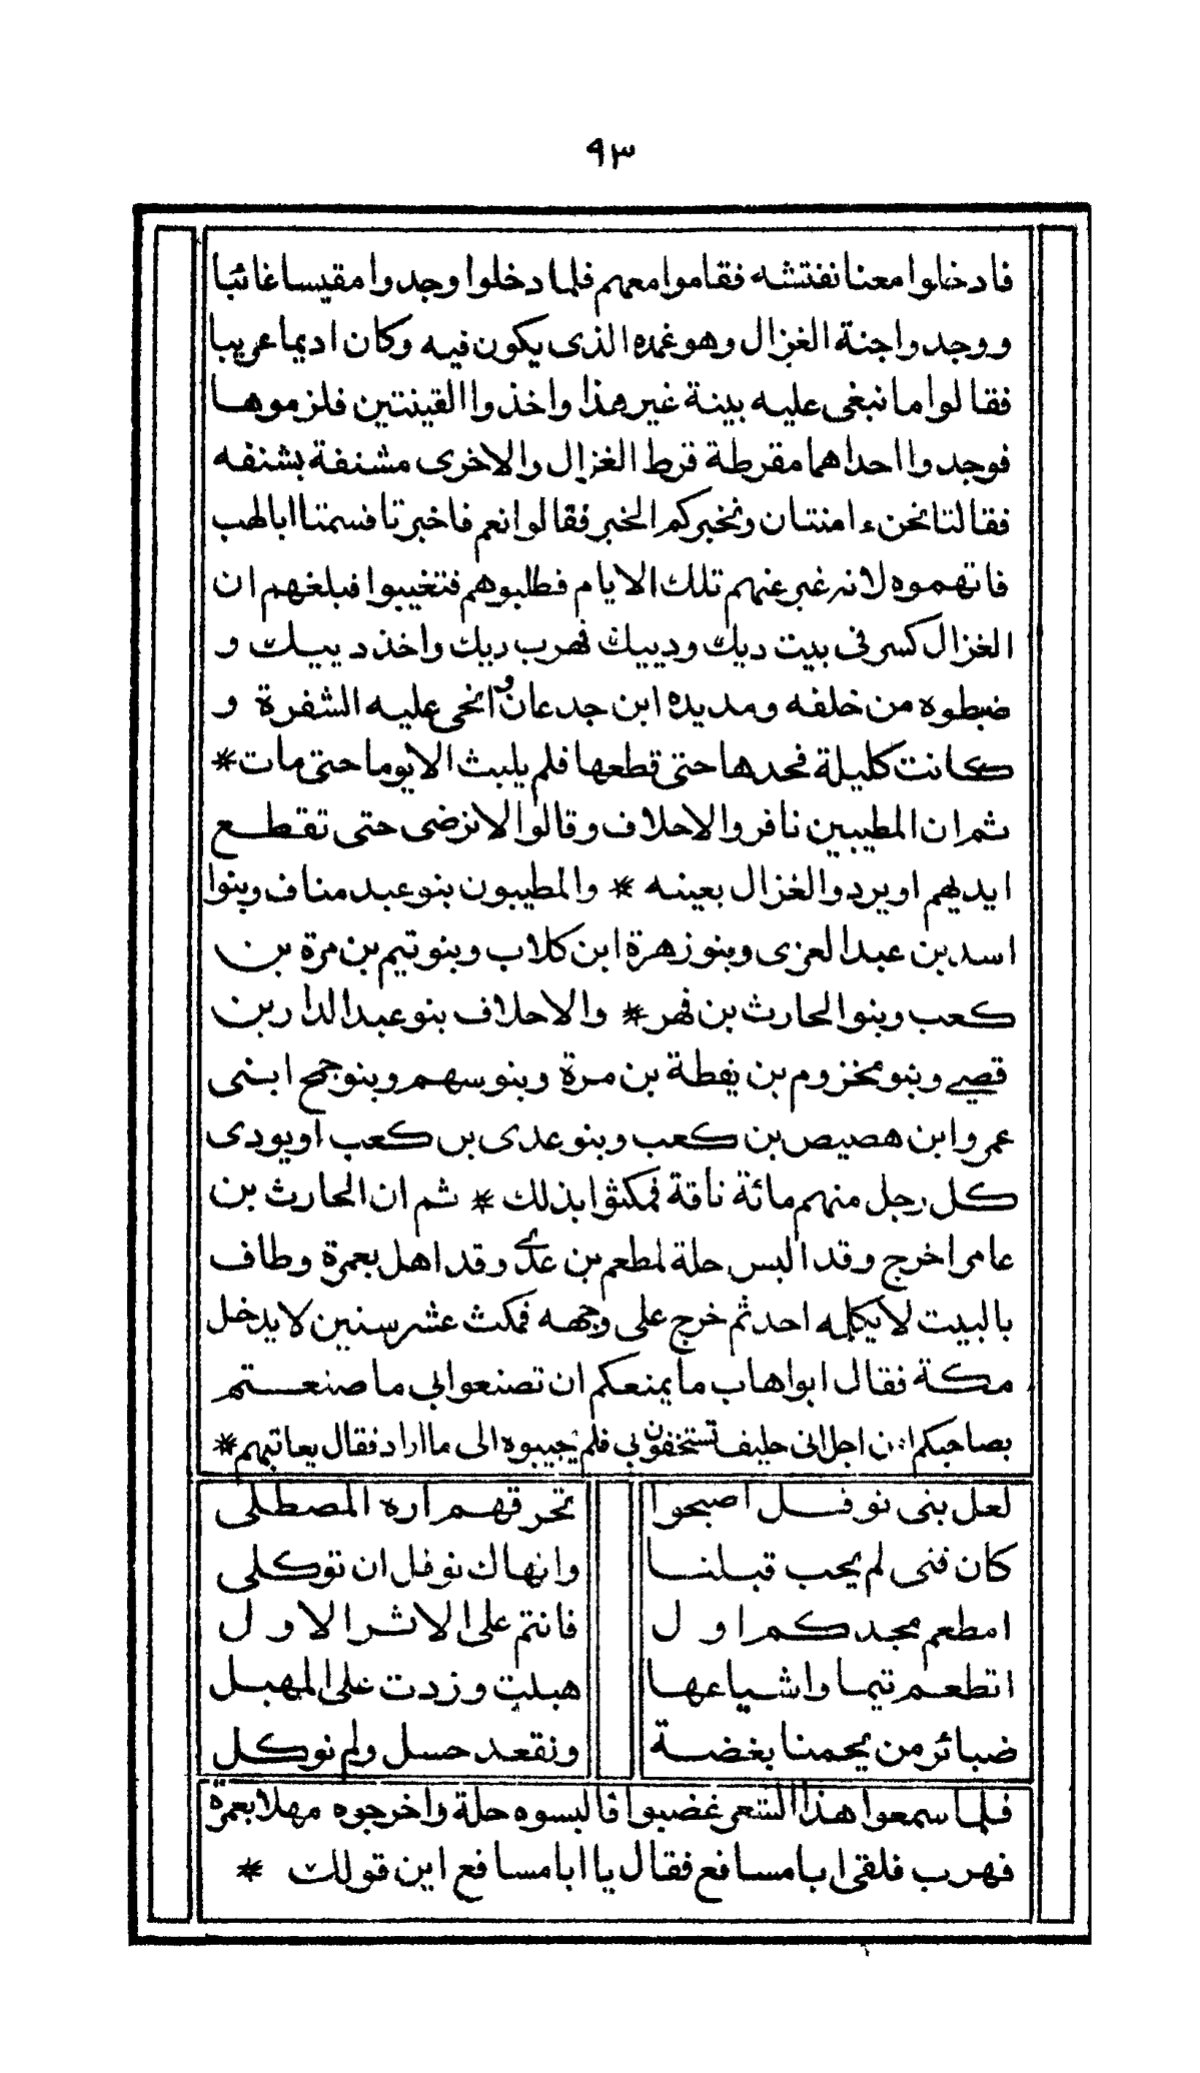 ٩٣
فادخلوا معنا نفتشه فقاموا معهم فلما دخلوا وجدوا مقيسا غائبا
ووجدوا جنة الغزال وهو غمده الذى يكون فيه وكان اديما عربيا
فقالوا ما نبغى عليه بينة غير هذا واخذوا القينتين فلزموها
فوجدوا احداهما مقرطة قرط الغزال والاخرى مشنفة بشنفه
فقالتا نحن ءامنتان ونخبركم الخبر فقالوا نعم فاخبرتا فسمتا ابا لهب
فاتهموه لانه غبر عنهم تلك الايام فطلبوهم فتغيبوا فبلغهم ان
الغزال كسر فى بيت ديك ودييك فهرب ديك واخذ دييك و
ضبطوه من خلفه ومد يده ابن جدعان وانحى عليه الشفرة و
كانت كليلة فحدها حتى قطعها فلم يلبث الا يوما حتى مات *
ثم ان المطيبين نافروا الاحلاف وقالوا لا نرضى حتى تقطع
ايديهم او يردوا الغزال بعينه * والمطيبون بنو عبد مناف وبنوا
اسد بن عبد العزى وبنو زهرة ابن كلاب وبنو تيم بن مرة بن
كعب وبنوا الحارث بن فهر * والاحلاف بنو عبد الدار بن
قصي وبنو مخزوم بن يقظة بن مرة وبنو سهم وبنو جمح ابنى
عمرو ابن هصيص بن كعب وبنو عدى بن كعب او يودى
كل رجل منهم مائة ناقة فمكثوا بذلك * ثم ان الحارث بن
عامر اخرج وقد البس حلة لمطعم بن عدي وقد اهل بعمرة وطاف
بالبيت لا يكلمه احد ثم خرج على وجهه فمكث عشر سنين لا يدخل
مكة فقال ابوا هاب ما يمنعكم ان تصنعوا بي ما صنعتم
بصاحبكم امن اجل انى حليف تستخفون بي فلم يجيبوه الى ما اراد فقال يعاتبهم *
لعل بنى نوفل اصبحوا تحرقهم اره المصطلى
كان فتى لم يحب قبلنا وانهاك نوفل ان توكلى
امطعم مجدكم اول فانتم على الاثر الاول
اتطعم تيما واشياعها هبلت وزدت على المهبل
ضبائر من يحمنا بغضة ونقعد حسل ولم نوكل
فلما سمعوا هذا الشعر غضبوا فالبسوه حلة واخرجوه مهلا بعمرة
فهرب فلقى ابا مسافع فقال يا ابا مسافع اين قولك *